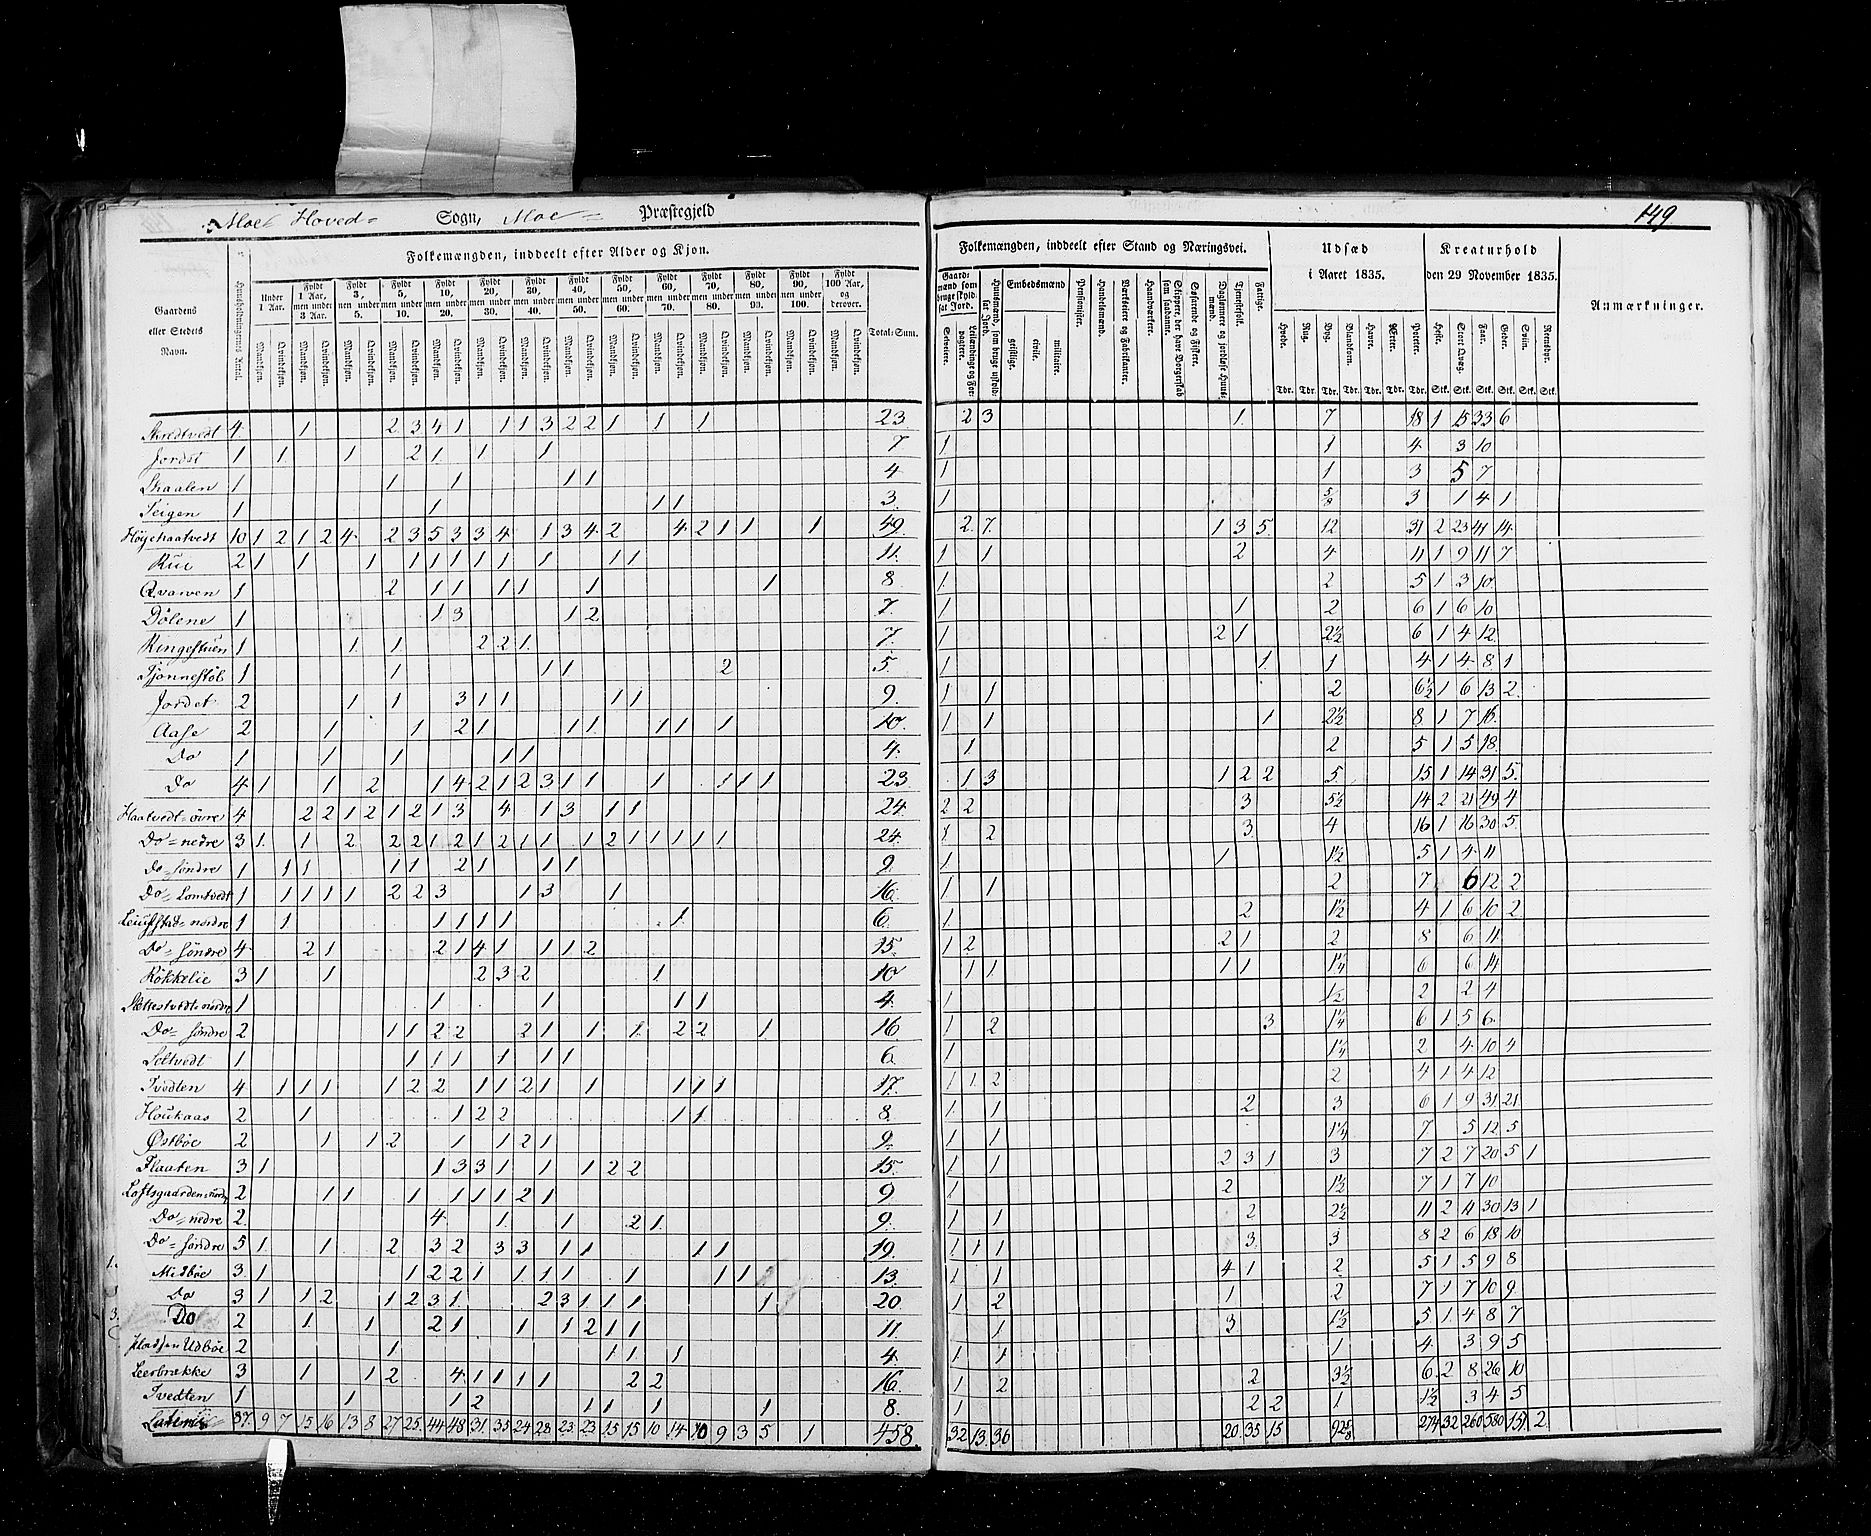 Moe Hoved= Sogn, Moe= Præstegjeld
149
Folkemængden, inddeelt efter Alder og Kjøn.
Folkemængden, inddeelt efter Stand og Næringsvei.
Udsæd i Aaret 1835.
Kreaturhold den 29 November 1835.
Anmærkninger.
Gaardens eller Stedets Navn.
Huusholdningernes Antal.
Under 1 Aar.
Fyldt 1 Aar, men under 3 Aar.
Fyldt 3, men under 5.
Fyldt 5, men under 10.
Fyldt 10, men under 20.
Fyldt 20, men under 30.
Fyldt 30, men under 40.
Fyldt 40, men under 50.
Fyldt 50, men under 60.
Fyldt 60, men under 70
Fyldt 70, men under 80.
Fyldt 80, men under 90.
Fyldt 90, men under 100.
Fyldt 100 Aar, og derover.
Total-Sum.
Mandkjøn. Qvindekjøn.
Gaardmænd som bruge skyldsat Jord.
Selveiere.
Leilændinge og Forpagtere.
Huusmænd, som bruge uskyldsat Jord.
Embedsmænd
geistlige. civile. militaire.
Pensionister.
Handelsmænd.
Værkseiere og Fabrikanter.
Haandværkere.
Skippere, der have Borgerskab som saadanne.
Søfarende og Fiskere.
Daglønnere og jordløse Huusmænd.
Tjenestefolk.
Fattige.
Hvede. Rug. Byg. Blandkorn. Havre. Erter. Poteter.
Tdr. Tdr. Tdr. Tdr. Tdr. Tdr. Tdr.
Heste. Stort Qvæg. Faar. Geder. Sviin. Rensdyr.
Stk. Stk. Stk. Stk. Stk. Stk.
Skredtvedt 4 1 2 3 4 1 1 1 3 2 2 1 1 1 23 2 3 1 7 18 1 15 33 6
1 1 1 2 1 1 1 7 1 1 4 3 10
Skaalen 1 1 1 1 1 4 1 1 3 5 7
Teigen 1 1 1 1 3 1 5/8 3 1 4 1
10 1 2 1 2 4 2 3 5 3 3 4 1 3 4 2 4 2 1 1 1 49 2 7 1 3 5 12 31 2 23 41 14
Rue 2 1 1 1 1 1 1 1 1 1 1 1 1 11 1 1 2 4 11 1 9 11 7
Qvaven 1 2 1 1 1 1 1 1 8 1 2 5 1 3 10
Dölene 1 1 3 1 2 7 1 1 2 6 1 6 10
Ringestuen 1 1 1 2 2 1 7 1 2 1 2½ 6 1 4 12
Tjönnestöl 1 1 1 1 2 5 1 1 1 4 1 4 8 1
Jordet 2 1 1 3 1 1 1 1 9 1 1 2 6½ 1 6 13 2
Aase 2 1 1 2 1 1 1 1 1 1 10 1 1 1 2½ 8 1 7 16
Do 1 1 1 1 1 4 1 2 5 1 5 18
Do 4 1 1 2 1 4 2 1 2 3 1 1 1 1 1 1 23 1 3 1 2 2 5 15 1 14 31 5
Haatvedt=övre 4 2 2 1 2 1 2 1 3 4 1 3 1 1 24 2 2 3 5½ 14 2 21 49 4
Do=nedre 3 1 1 2 2 2 1 2 1 2 1 1 1 2 1 1 1 1 1 24 1 2 3 4 16 1 16 30 5
Do=söndre 1 1 1 1 1 2 1 1 1 9 1 1 1½ 5 1 4 11
Do=Lomtvedt 1 1 1 1 1 2 2 3 1 3 1 16 1 1 2 7 6 12 2
1 1 1 1 1 1 1 6 1 2 1½ 4 1 6 10 2
Do=söndre 4 2 1 2 1 4 1 1 1 2 15 1 2 2 1 2 8 6 11
Rökkelie 3 1 1 2 3 2 1 10 1 1 1 1 1¼ 6 6 14
1 1 1 1 1 4 1 ½ 2 2 4
Do=söndre 2 1 1 2 2 2 1 1 1 2 2 1 16 1 2 3 1¼ 6 1 5 6
1 1 1 1 1 1 1 6 1 1¼ 2 4 10 4
Tvedten 4 1 1 1 1 2 2 1 1 2 1 1 1 1 1 17 1 1 2 2 4 1 4 12
Houkaas 2 1 1 2 2 1 1 8 1 1 2 3 6 1 9 31 21
Östböe 2 1 1 2 1 1 2 1 9 1 1 1¼ 7 5 12 5
Flaaten 3 1 1 3 3 1 1 1 2 2 15 1 1 2 3 1 3 7 2 7 20 5 1
2 1 1 1 1 1 1 2 1 9 1 2 1½ 7 1 7 10
Do=nedre 2 4 1 1 2 1 9 1 1 2 2½ 11 2 4 30 13 1
Do=söndre 5 1 1 2 3 2 3 3 1 1 1 1 19 1 1 1 3 3 8 2 6 18 10
Midböe 3 1 1 2 2 1 1 1 1 1 1 1 13 1 1 4 1 2 5 1 5 9 8
Do 3 1 1 2 1 2 3 1 2 3 1 1 1 1 20 1 2 1 2 7 1 7 10 9
Do 2 1 1 2 1 1 1 2 1 1 11 1 3 1½ 5 1 4 8 7
Udböe 2 1 1 1 1 4 1 1 1 4 3 9 5
Leerbrække 3 1 1 2 4 1 1 1 1 2 2 16 1 2 2 3½ 6 2 8 26 10
Tvedten 1 1 1 2 1 1 1 1 8 1 2 2 1 1½ 3 4 5
87 9 7 15 16 13 8 27 25 44 48 31 35 24 28 23 23 15 15 10 14 10 9 3 5 1 458 32 13 36 20 35 15 92 5/8 274 32 260 580 151 2